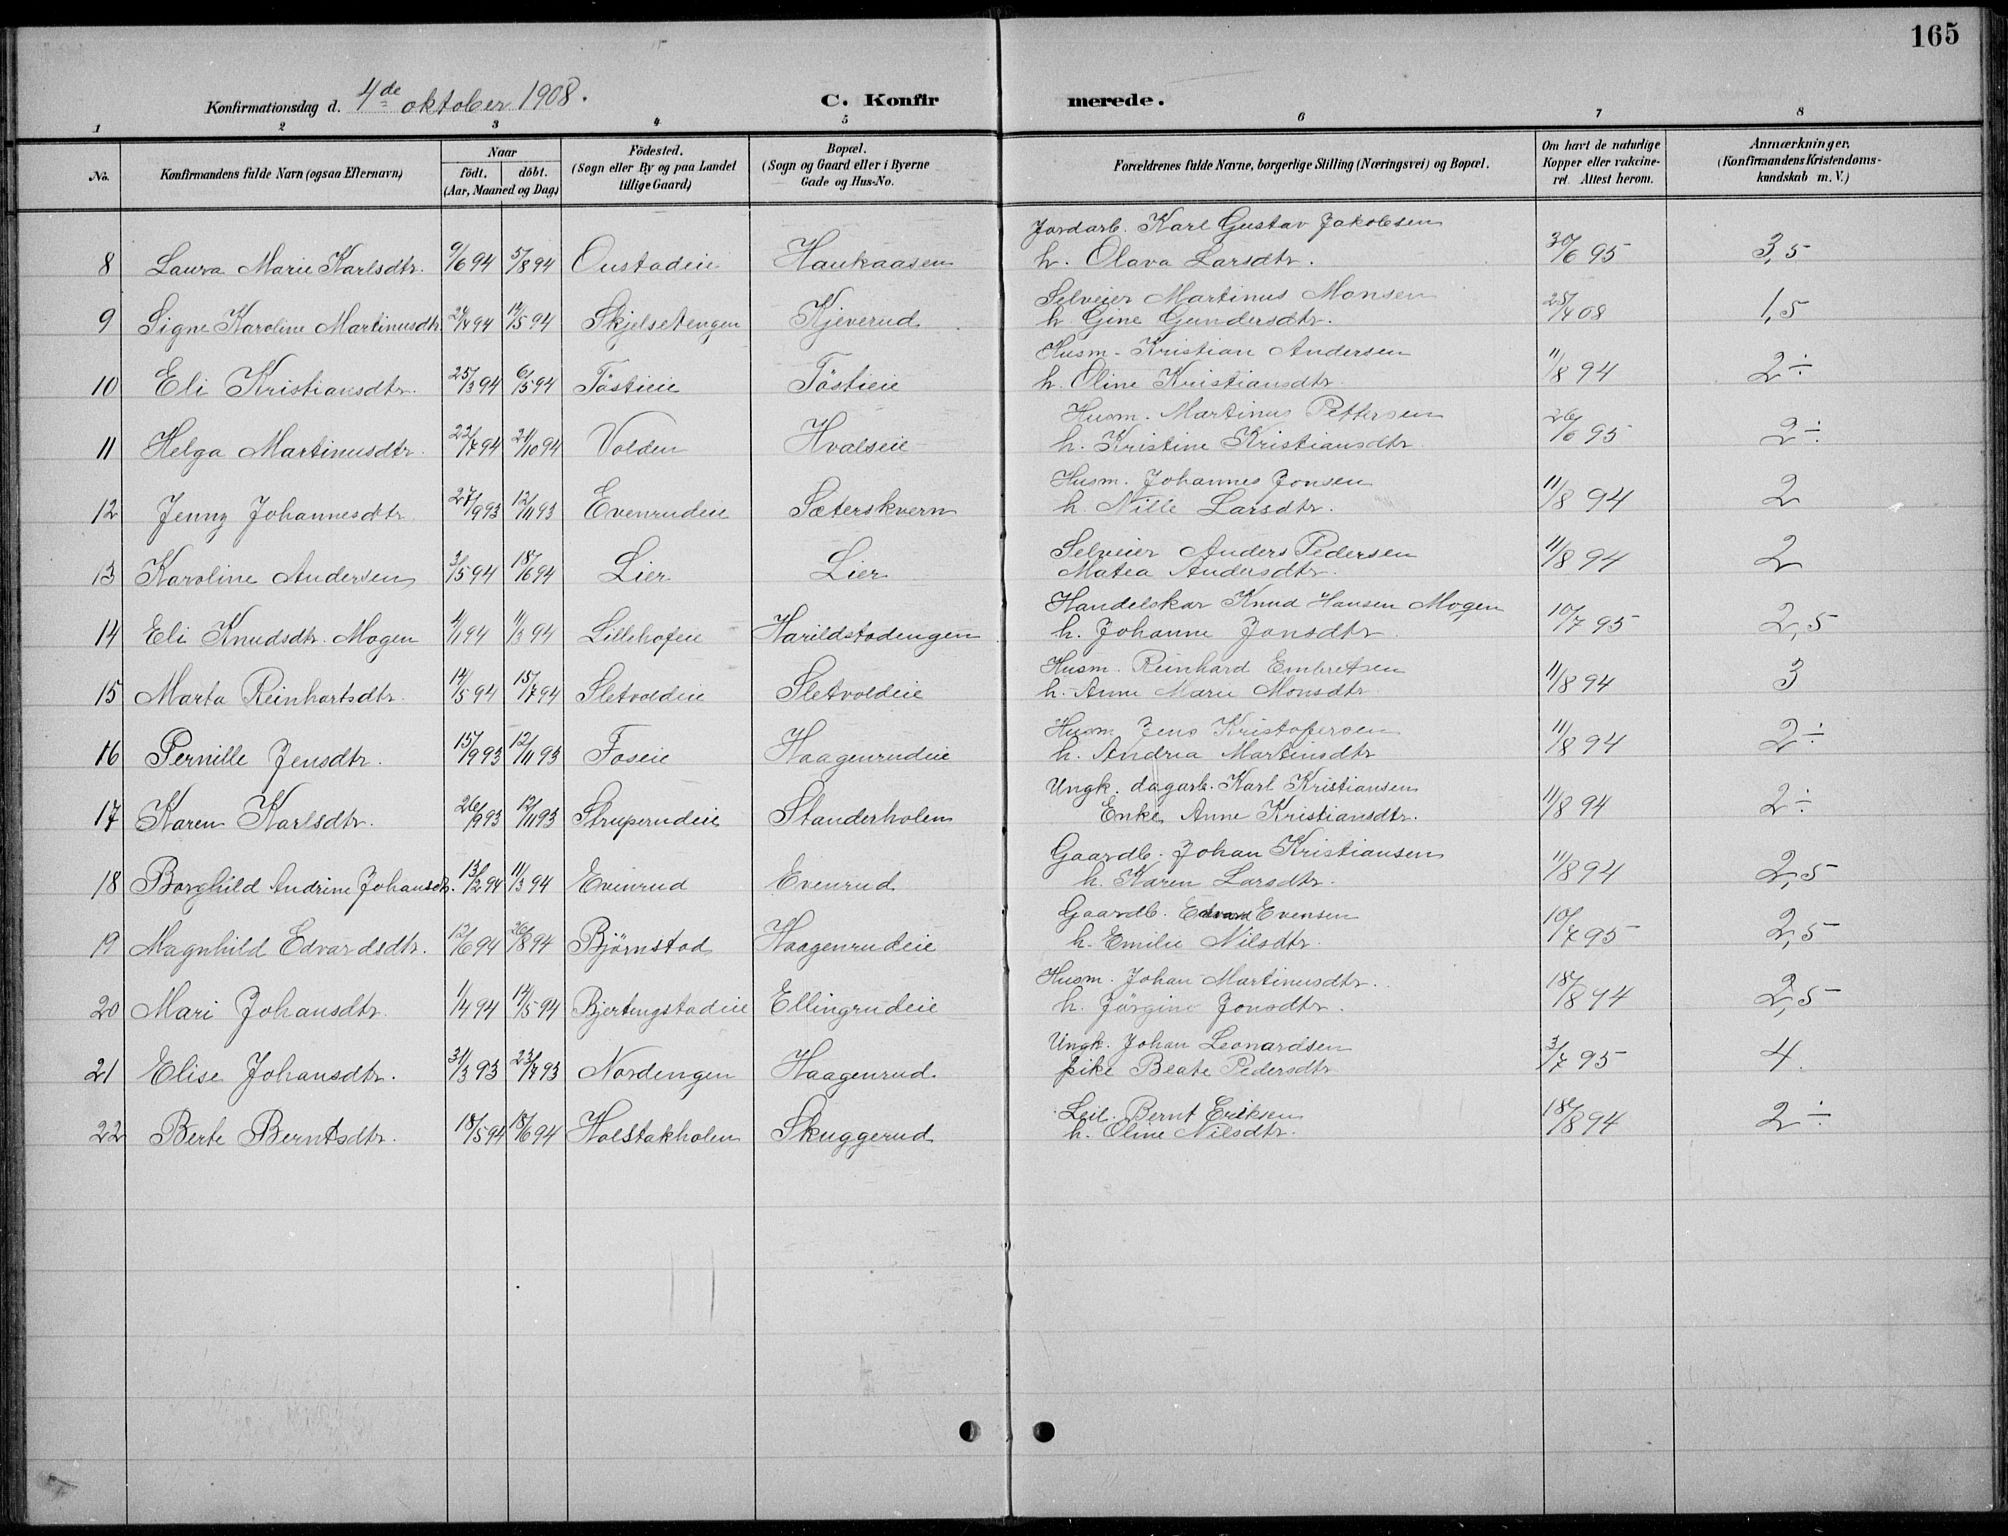 165
Konfirmationsdag d. 4de oktober 1908. C. Konfirmerede.
1 2 3 4 5 6 7 8
No. Konfirmandens fulde Navn (ogsaa Efternavn) Naar födt. döbt. (Aar, Maaned og Dag) Födested. (Sogn eller By og paa Landet tillige Gaard) Bopæl. (Sogn og Gaard eller i Byerne Gade og Hus-No. Forældrenes fulde Navne, borgerlige Stilling (Næringsvei) og Bopæl. Om havt de naturlige Kopper eller vakcineret. Attest herom. Anmærkninger. (Konfirmandens Kristendomskundskab m. V.)
Jordarb. Karl Gustav Jakobsen
8 Laura Marie Karlsdtr. 9/6 94 5/8 94 Oustadeie Haukaasen h. Olava Larsdtr. 30/6 95 3,5
Selveier Martinus Monsen
9 Signe Karoline Martinusdtr 14/5 94 Skjelsetengen Kjeverud h. Gine Gundersdtr. 1,5
Husm. Kristian Andersen
10 Eli Kristiansdtr. 25/3 94 6/5 94 Töstieie Töstieie h. Oline Kristiansdtr. 11/8 94 2÷
Husm. Martinus Pettersen
11 Helga Martinusdtr. 22/7 94 21/10 94 Volden Hvalseie h. Kristine Kristiansdtr. 26/6 95 2÷
Husm. Johannes Jonsen
12 Jenny Johannesdtr. 27/9 93 12/11 93 Evenrudeie Sæterskvern h. Nille Larsdtr. 11/8 94 2
Selveier Anders Pedersen
13 Karoline Andersen 3/5 94 18/6 94 Lier Lier Matea Andersdtr. 11/8 94 2
Handelskar Knud Hansen Mogen
14 Eli Knudsdtr. Mogen 4/1 94 11/3 94 Lillehofeie Harildstadengen h. Johanne Jonsdtr. 10/7 95 2,5
Husm. Reinhard Embretsen
15 Marta Reinhartsdtr. 14/5 94 15/7 94 Sletvoldeie Sletvoldeie h. Anne Marie Monsdtr. 11/8 94 3
Husm. Jens Kristofersen
16 Pernille Jensdtr. 15/9 93 12/11 93 Foseie Haagenrudeie h. Andrea Martinsdtr 11/8 94 2÷
Ungk. dagarb. Karl Kristiansen
17 Karen Karlsdtr. 26/9 93 12/11 93 Struperudeie Standerholen Enke Anne Kristiansdtr. 11/8 94 2÷
Gaardb. Johan Kristiansen
18 Borghild Andrine Johansdtr. 13/2 94 11/3 94 Evenrud Evenrud h. Karen Larsdtr. 11/8 94 2,5
Gaardb. Edvard Evensen
19 Magnhild Edvardsdtr. 12/6 94 26/8 94 Björnstad Haagenrudeie h. Emilie Nilsdtr. 10/7 95 2,5
Husm. Johan Martinusdtr.
20 Mari Johansdtr. 1/4 94 14/5 94 Bjertingstadeie Ellingrudeie h. Jörgine Jonsdtr. 18/8 94 2,5
Ungk. Johan Leonardsen
21 Elise Johansdtr. 31/3 93 23/7 93 Nordengen Haagenrud pike Beate Pedersdtr 3/7 95 4.
Leil. Bernt Eriksen
22 Berte Berntsdtr. 18/5 94 Holstakholen Skuggerud h. Oline Nilsdtr. 18/8 94 2÷